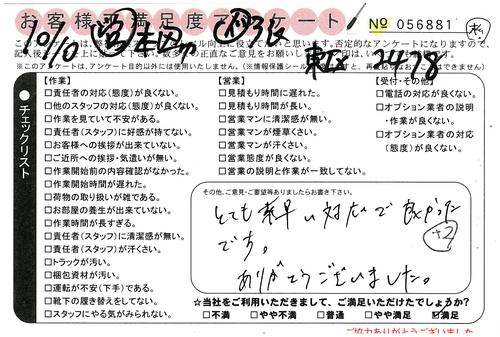 お客様満足度アンケート
№ 056881
10/10
3478
※このアンケートは、アンケート目的以外には使用いたしません。
チェックリスト
【作業】
□責任者の対応(態度)が良くない。
□他のスタッフの対応(態度)が良くない。
□作業を見ていて不安がある。
□責任者(スタッフ)に好感が持てない。
□お客様への挨拶が出来ていない。
□ご近所への挨拶・気遣いが無い。
□作業開始前の内容確認がなかった。
□作業開始時間が遅れた。
□荷物の取り扱いが雑である。
□お部屋の養生が出来ていない。
□作業時間が長すぎる。
□責任者(スタッフ)に清潔感が無い。
□責任者(スタッフ)が汗くさい。
□トラックが汚い。
□梱包資材が汚い。
□運転が不安(下手)である。
□靴下の履き替えをしてない。
□スタッフにやる気がみられない。
【営業】
□見積もり時間に遅れた。
□見積もり時間が長い。
□営業マンに清潔感が無い。
□営業マンが煙草くさい。
□営業マンが汗くさい。
□営業態度が良くない。
□営業の説明と作業が一致してない。
【受付・その他】
□電話の対応が良くない。
□オプション業者の説明
・作業が良くない。
□オプション業者の対応
(態度)が良くない。
その他、ご意見・ご要望等ありましたらお書き下さい。
とても素早い対応で良かった
です。
+2
ありがとうございました。
☆当社をご利用いただきまして、ご満足いただけたでしょうか?
□不満 □やや不満 □普通 □やや満足 ☑満足
ご協力ありがとうございました